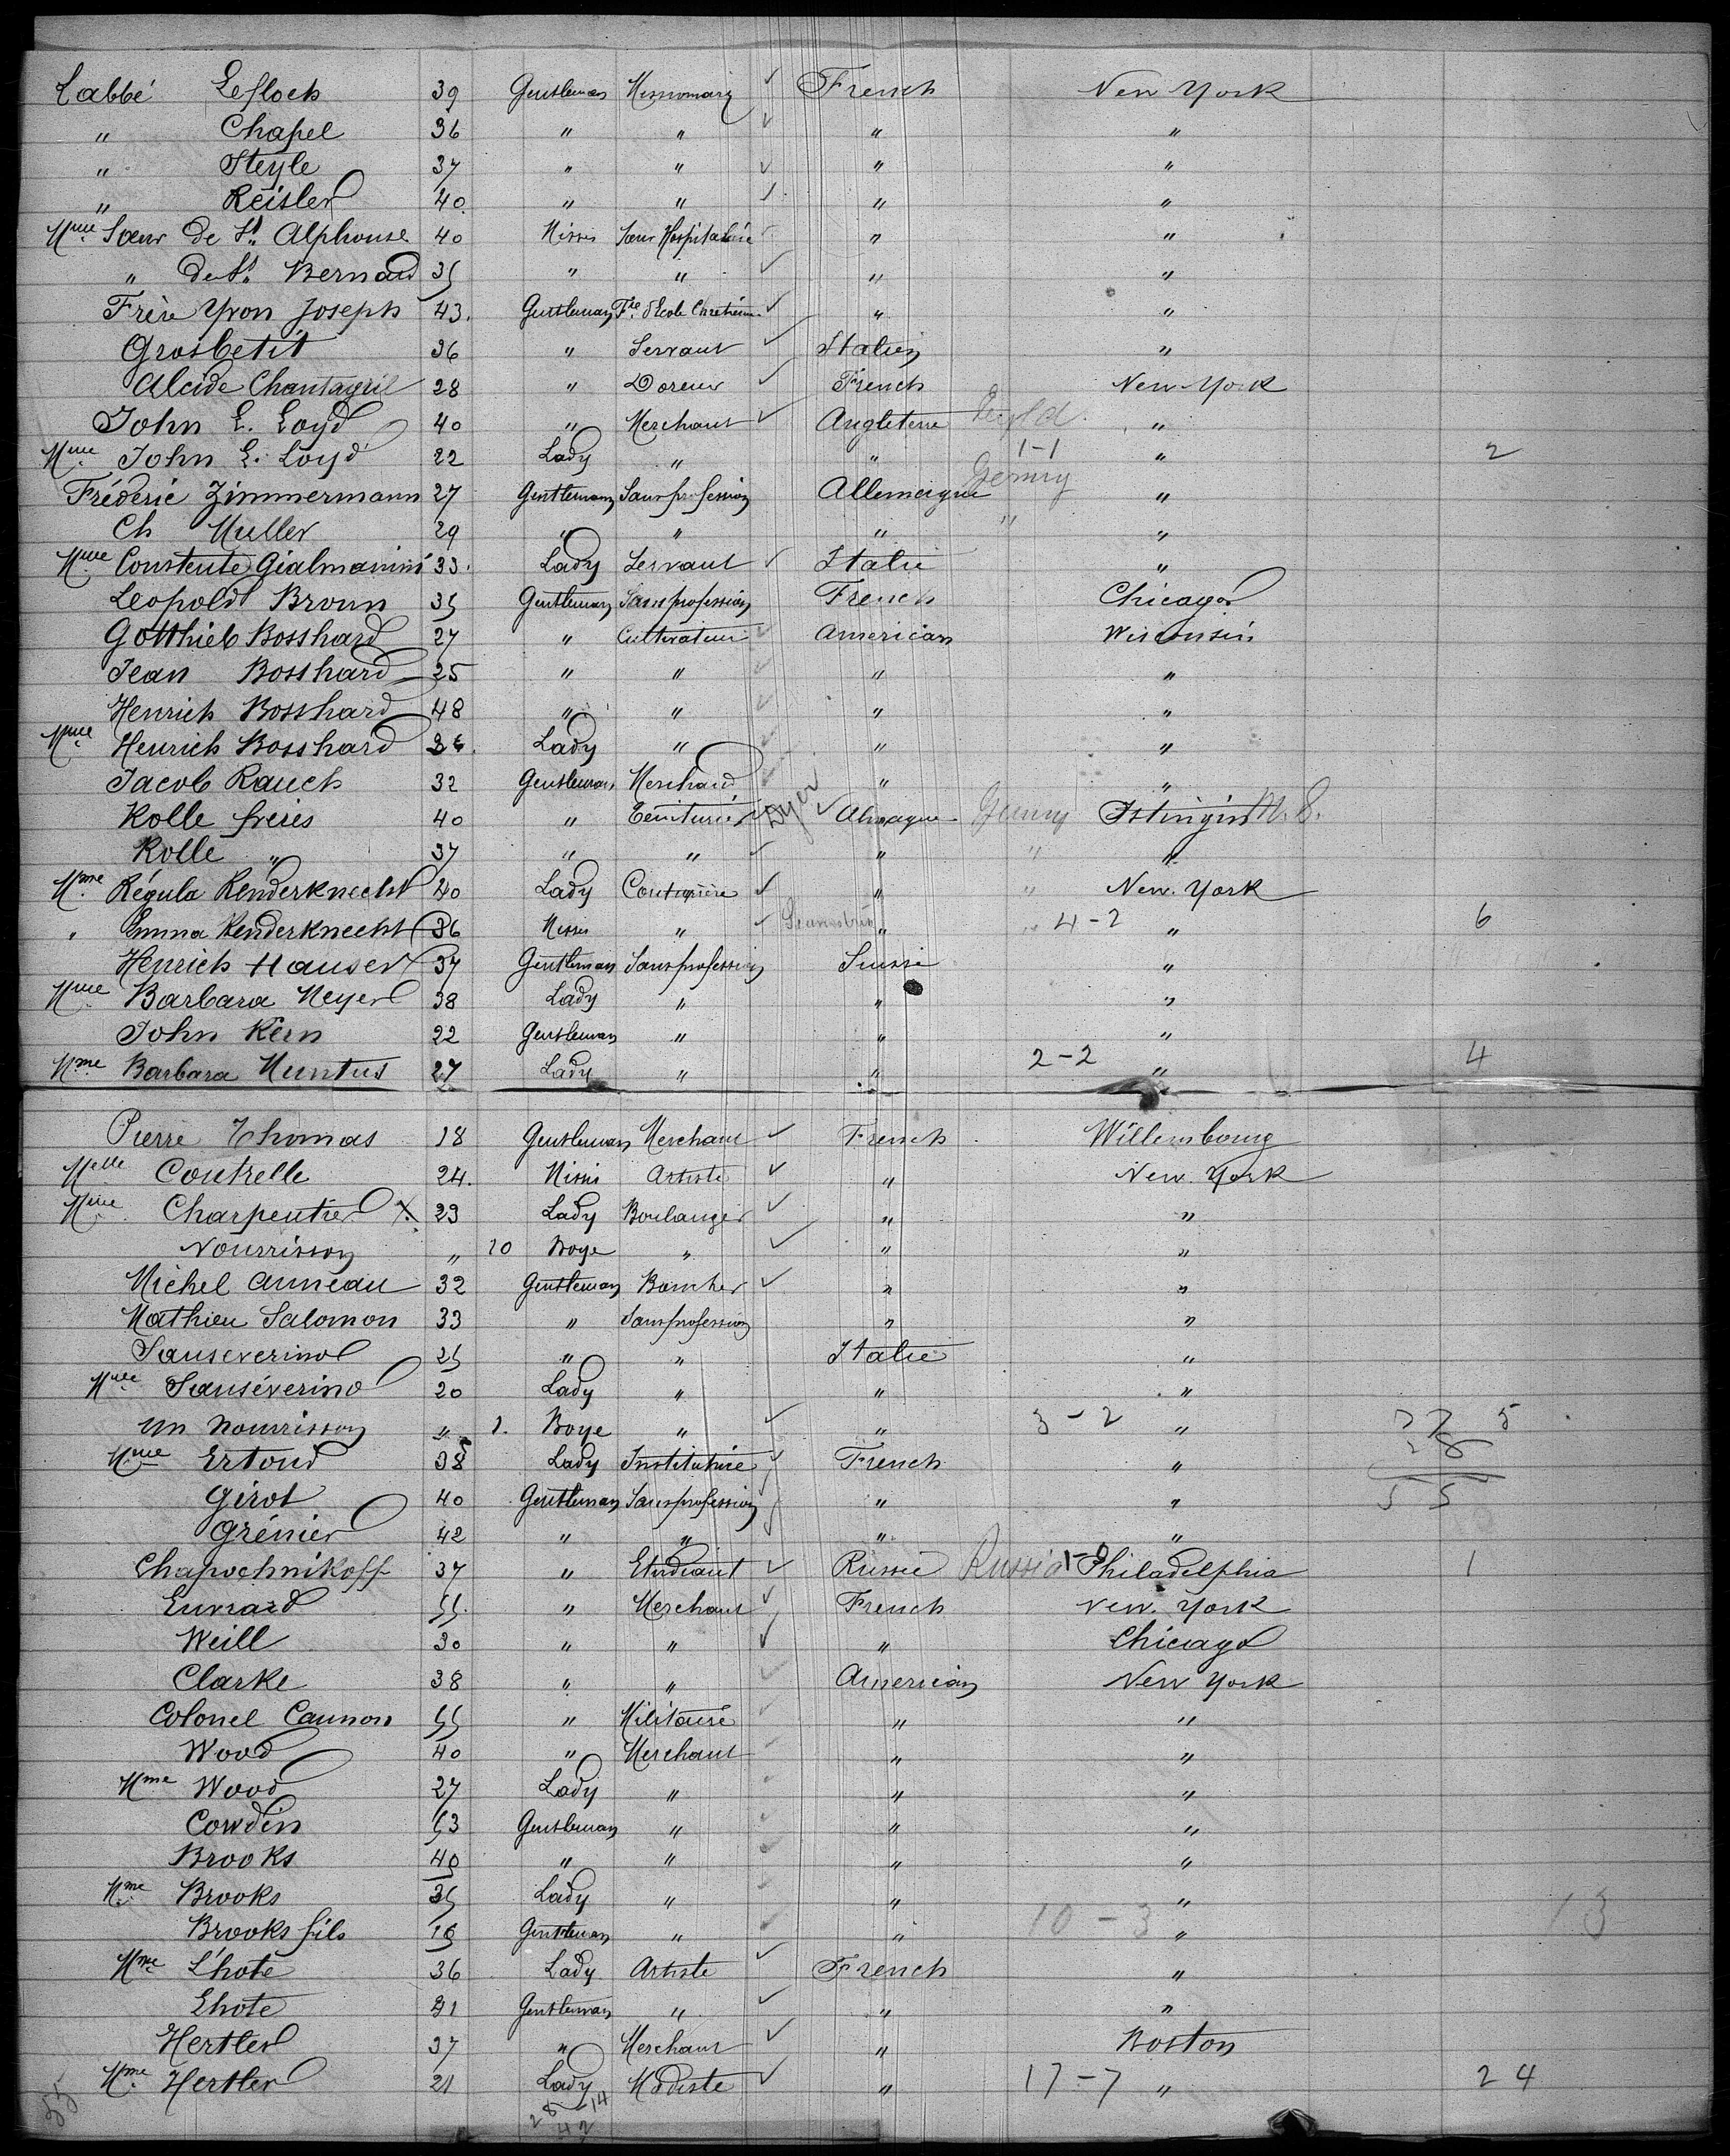 Labbé Lefloch 39 Gentleman Missionary ✓ French New York
" Chapel 36 " " ✓ " "
" Steyle 37 " " ✓ " "
" Reisler 40. " " ✓ " "
Mme Sœur de St. Alphonse 40 Missis Sœur Hospitalière " "
" de St. Bernard 35 " " ✓ " "
Frère Yvon Joseph 43. Gentleman Fre. d'Ecole Chretienne ✓ " "
Grosbetit 36 " Servant ✓ Italien "
Alcide Chantagril 28 " Doreur ✓ French New York
John E. Loyd 40 " Merchant ✓ Angleterre "
Mme John E. Loyd 22 Lady " " 1-1 " 2
Fréderic Zimmermann 27 Gentleman Sans profession Allemagne Germy "
Ch Muller 29 " " " " "
Mme Constente Gialmanini 33. Lady Servant ✓ Italie "
Leopold Bronn 35 Gentleman Sans profession French Chicago
Gotthieb Bosshard 27 " Cultivateur ✓ American Wisconsin
Jean Bosshard 25 " " ✓ " "
Henrich Bosshard 48 " " ✓ " "
Mme Henrich Bosshard 36. Lady " ✓ " "
Jacob Rauch 32 Gentleman Merchand ✓ " "
Rolle frères 40 " Teinturier ✓ Dyer ✓ Almagne Germy
Rolle " 37 " " ✓ " " "
Mme Régula Kenderknecht 40 Lady Couturière ✓ " " New York
" Emma Kenderknecht 36 Missis " ✓ " " 4-2 " 6
Henrich Hauser 37 Gentleman Sans profession Suisse "
Mme Barbara Meyer 38 Lady " " "
John Kern 22 Gentleman " " "
Mme Barbara Muntus 27 Lady " " 2-2 " 4
Pierre Thomas 18 Gentleman Merchant ✓ French Willemsbourg
Melle Coutrelle 24. Missis Artiste ✓ " New York
Mme Charpentier X. 23 Lady Boulanger ✓ " "
Nourrisson " 10 Boye " ✓ " "
Michel Anneau 32 Gentleman Boucher ✓ " "
Mathieu Salomon 33 " Sans profession " "
Sanseverino 25 " " Italie "
Mme Sanséverino 20 Lady " " "
un nourrisson " 1. Boye " ✓ " 3-2 " 5
Mme Ertoud 38 Lady Institutrice ✓ French "
Girot 40 Gentleman Sans profession " "
Grénier 42 " " " "
Chapochnikoff 37 " Etudiant ✓ Russie Russia 1-0 Philadelphia 1
Euvrard 55. " Merchant ✓ French New York
Weill 30 " " ✓ " Chicago
Clarke 38 " " ✓ American New York
Colonel Cannon 55 " Militaire ✓ " "
Wood 40 " Merchant ✓ " "
Mme Wood 27 Lady " ✓ " "
Cowdin 53 Gentleman " ✓ " "
Brooks 45 " " ✓ " "
Mme Brooks 35 Lady " ✓ " "
Brooks fils 16 Gentleman " ✓ " 10-3 " 13
Mme Lhote 36 Lady Artiste ✓ French "
Lhote 31 Gentleman " ✓ " "
Hertler 37 " Merchant ✓ " Boston
Mme Hertler 21 Lady Modiste ✓ " 17-7 " 24
55
28 14
42